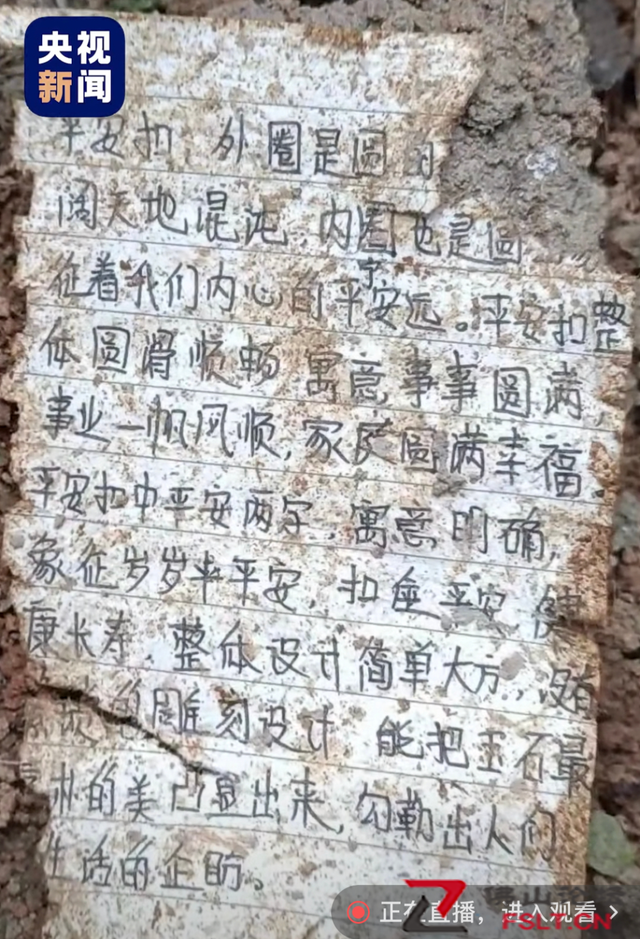 央视
新闻
平安扣，外圈是圆的
阔天地混沌 内圈也是圆
征着我们内心的平安宁远。平安扣整
体圆滑顺畅 寓意事事圆满，
事业一帆风顺，家庭圆满幸福。
平安扣中平安两字，寓意明确，
象征岁岁平平安，扣座平安 健
康长寿。整体设计简单大方，没有
的雕刻设计 能把玉石最
的美凸显出来，勾勒出人们
生活的企盼。
正在直播，进入观看 >
FSLT.CN